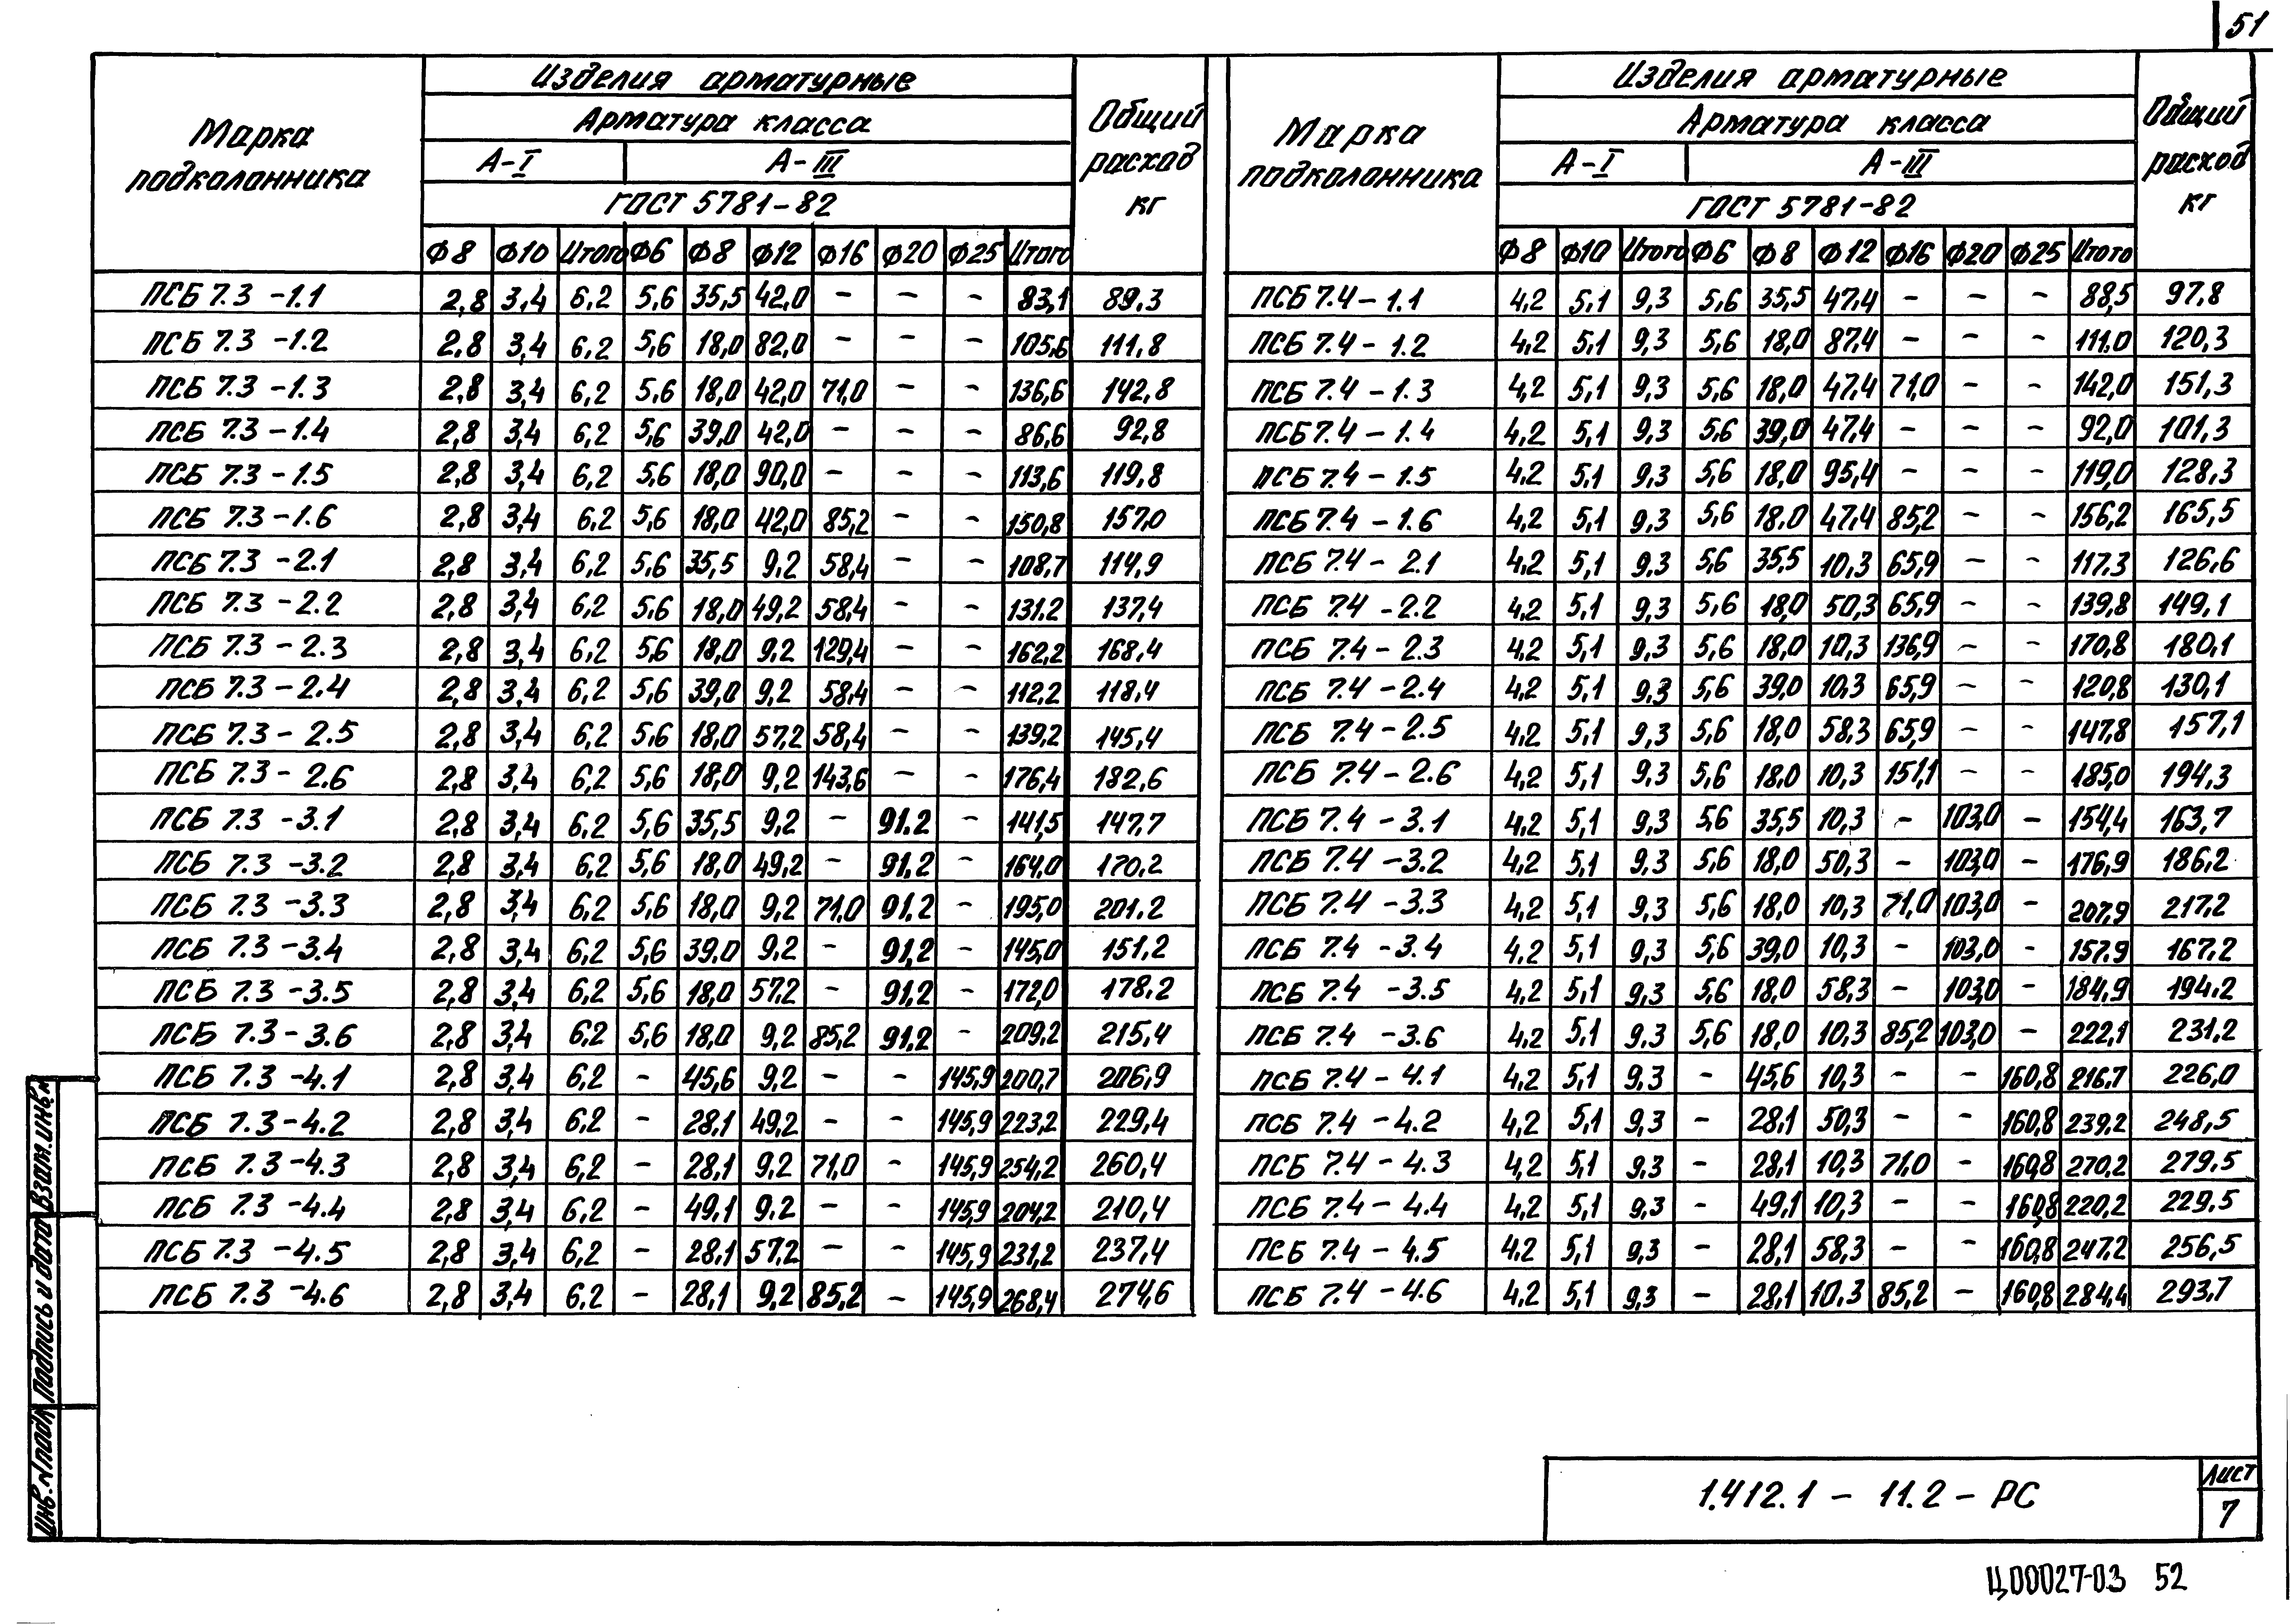 51
Марка подколонника
Изделия арматурные
Арматура класса
А-I А-III
ГОСТ 5781-82
Общий расход кг
Ф8 Ф10 Итого Ф6 Ф8 Ф12 Ф16 Ф20 Ф25 Итого
ПСБ 7.3 -1.1 2,8 3,4 6,2 5,6 35,5 42,0 - - - 83,1 89,3
ПСБ 7.3 -1.2 2,8 3,4 6,2 5,6 18,0 82,0 - - - 105,6 111,8
ПСБ 7.3 -1.3 2,8 3,4 6,2 5,6 18,0 42,0 71,0 - - 136,6 142,8
ПСБ 7.3 -1.4 2,8 3,4 6,2 5,6 39,0 42,0 - - - 86,6 92,8
ПСБ 7.3 -1.5 2,8 3,4 6,2 5,6 18,0 90,0 - - - 113,6 119,8
ПСБ 7.3 -1.6 2,8 3,4 6,2 5,6 18,0 42,0 85,2 - - 150,8 157,0
ПСБ 7.3 -2.1 2,8 3,4 6,2 5,6 35,5 9,2 58,4 - - 108,7 114,9
ПСБ 7.3 -2.2 2,8 3,4 6,2 5,6 18,0 49,2 58,4 - - 131,2 137,4
ПСБ 7.3 -2.3 2,8 3,4 6,2 5,6 18,0 9,2 129,4 - - 162,2 168,4
ПСБ 7.3 -2.4 2,8 3,4 6,2 5,6 39,0 9,2 58,4 - - 112,2 118,4
ПСБ 7.3 - 2.5 2,8 3,4 6,2 5,6 18,0 57,2 58,4 - - 139,2 145,4
ПСБ 7.3 - 2.6 2,8 3,4 6,2 5,6 18,0 9,2 143,6 - - 176,4 182,6
ПСБ 7.3 -3.1 2,8 3,4 6,2 5,6 35,5 9,2 - 91,2 - 141,5 147,7
ПСБ 7.3 -3.2 2,8 3,4 6,2 5,6 18,0 49,2 - 91,2 - 164,0 170,2
ПСБ 7.3 -3.3 2,8 3,4 6,2 5,6 18,0 9,2 71,0 91,2 - 195,0 201,2
ПСБ 7.3 -3.4 2,8 3,4 6,2 5,6 39,0 9,2 - 91,2 - 145,0 151,2
ПСБ 7.3 -3.5 2,8 3,4 6,2 5,6 18,0 57,2 - 91,2 - 172,0 178,2
ПСБ 7.3 - 3.6 2,8 3,4 6,2 5,6 18,0 9,2 85,2 91,2 - 209,2 215,4
ПСБ 7.3 -4.1 2,8 3,4 6,2 - 45,6 9,2 - - 145,9 200,7 206,9
ПСБ 7.3 -4.2 2,8 3,4 6,2 - 28,1 49,2 - - 145,9 223,2 229,4
ПСБ 7.3 -4.3 2,8 3,4 6,2 - 28,1 9,2 71,0 - 145,9 254,2 260,4
ПСБ 7.3 -4.4 2,8 3,4 6,2 - 49,1 9,2 - - 145,9 204,2 210,4
ПСБ 7.3 -4.5 2,8 3,4 6,2 - 28,1 57,2 - - 145,9 231,2 237,4
ПСБ 7.3 -4.6 2,8 3,4 6,2 - 28,1 9,2 85,2 - 145,9 268,4 274,6
Марка подколонника
Изделия арматурные
Арматура класса
А-I А-III
ГОСТ 5781-82
Общий расход кг
Ф8 Ф10 Итого Ф6 Ф8 Ф12 Ф16 Ф20 Ф25 Итого
ПСБ 7.4 - 1.1 4,2 5,1 9,3 5,6 35,5 47,4 - - - 88,5 97,8
ПСБ 7.4 - 1.2 4,2 5,1 9,3 5,6 18,0 87,4 - - - 111,0 120,3
ПСБ 7.4 - 1.3 4,2 5,1 9,3 5,6 18,0 47,4 71,0 - - 142,0 151,3
ПСБ 7.4 - 1.4 4,2 5,1 9,3 5,6 39,0 47,4 - - - 92,0 101,3
ПСБ 7.4 - 1.5 4,2 5,1 9,3 5,6 18,0 95,4 - - - 119,0 128,3
ПСБ 7.4 - 1.6 4,2 5,1 9,3 5,6 18,0 47,4 85,2 - - 156,2 165,5
ПСБ 7.4 - 2.1 4,2 5,1 9,3 5,6 35,5 10,3 65,9 - - 117,3 126,6
ПСБ 7.4 - 2.2 4,2 5,1 9,3 5,6 18,0 50,3 65,9 - - 139,8 149,1
ПСБ 7.4 - 2.3 4,2 5,1 9,3 5,6 18,0 10,3 136,9 - - 170,8 180,1
ПСБ 7.4 - 2.4 4,2 5,1 9,3 5,6 39,0 10,3 65,9 - - 120,8 130,1
ПСБ 7.4 - 2.5 4,2 5,1 9,3 5,6 18,0 58,3 65,9 - - 147,8 157,1
ПСБ 7.4 - 2.6 4,2 5,1 9,3 5,6 18,0 10,3 151,1 - - 185,0 194,3
ПСБ 7.4 - 3.1 4,2 5,1 9,3 5,6 35,5 10,3 - 103,0 - 154,4 163,7
ПСБ 7.4 -3.2 4,2 5,1 9,3 5,6 18,0 50,3 - 103,0 - 176,9 186,2
ПСБ 7.4 -3.3 4,2 5,1 9,3 5,6 18,0 10,3 71,0 103,0 - 207,9 217,2
ПСБ 7.4 -3.4 4,2 5,1 9,3 5,6 39,0 10,3 - 103,0 - 157,9 167,2
ПСБ 7.4 -3.5 4,2 5,1 9,3 5,6 18,0 58,3 - 103,0 - 184,9 194,2
ПСБ 7.4 -3.6 4,2 5,1 9,3 5,6 18,0 10,3 85,2 103,0 - 222,1 231,2
ПСБ 7.4 - 4.1 4,2 5,1 9,3 - 45,6 10,3 - - 160,8 216,7 226,0
ПСБ 7.4 - 4.2 4,2 5,1 9,3 - 28,1 50,3 - - 160,8 239,2 248,5
ПСБ 7.4 - 4.3 4,2 5,1 9,3 - 28,1 10,3 71,0 - 160,8 270,2 279,5
ПСБ 7.4 - 4.4 4,2 5,1 9,3 - 49,1 10,3 - - 160,8 220,2 229,5
ПСБ 7.4 - 4.5 4,2 5,1 9,3 - 28,1 58,3 - - 160,8 247,2 256,5
ПСБ 7.4 - 4.6 4,2 5,1 9,3 - 28,1 10,3 85,2 - 160,8 284,4 293,7
Инв.№подл Подпись и дата Взам.инв.№
1.412.1 - 11.2 - РС
Лист
7
Ц00027-03 52